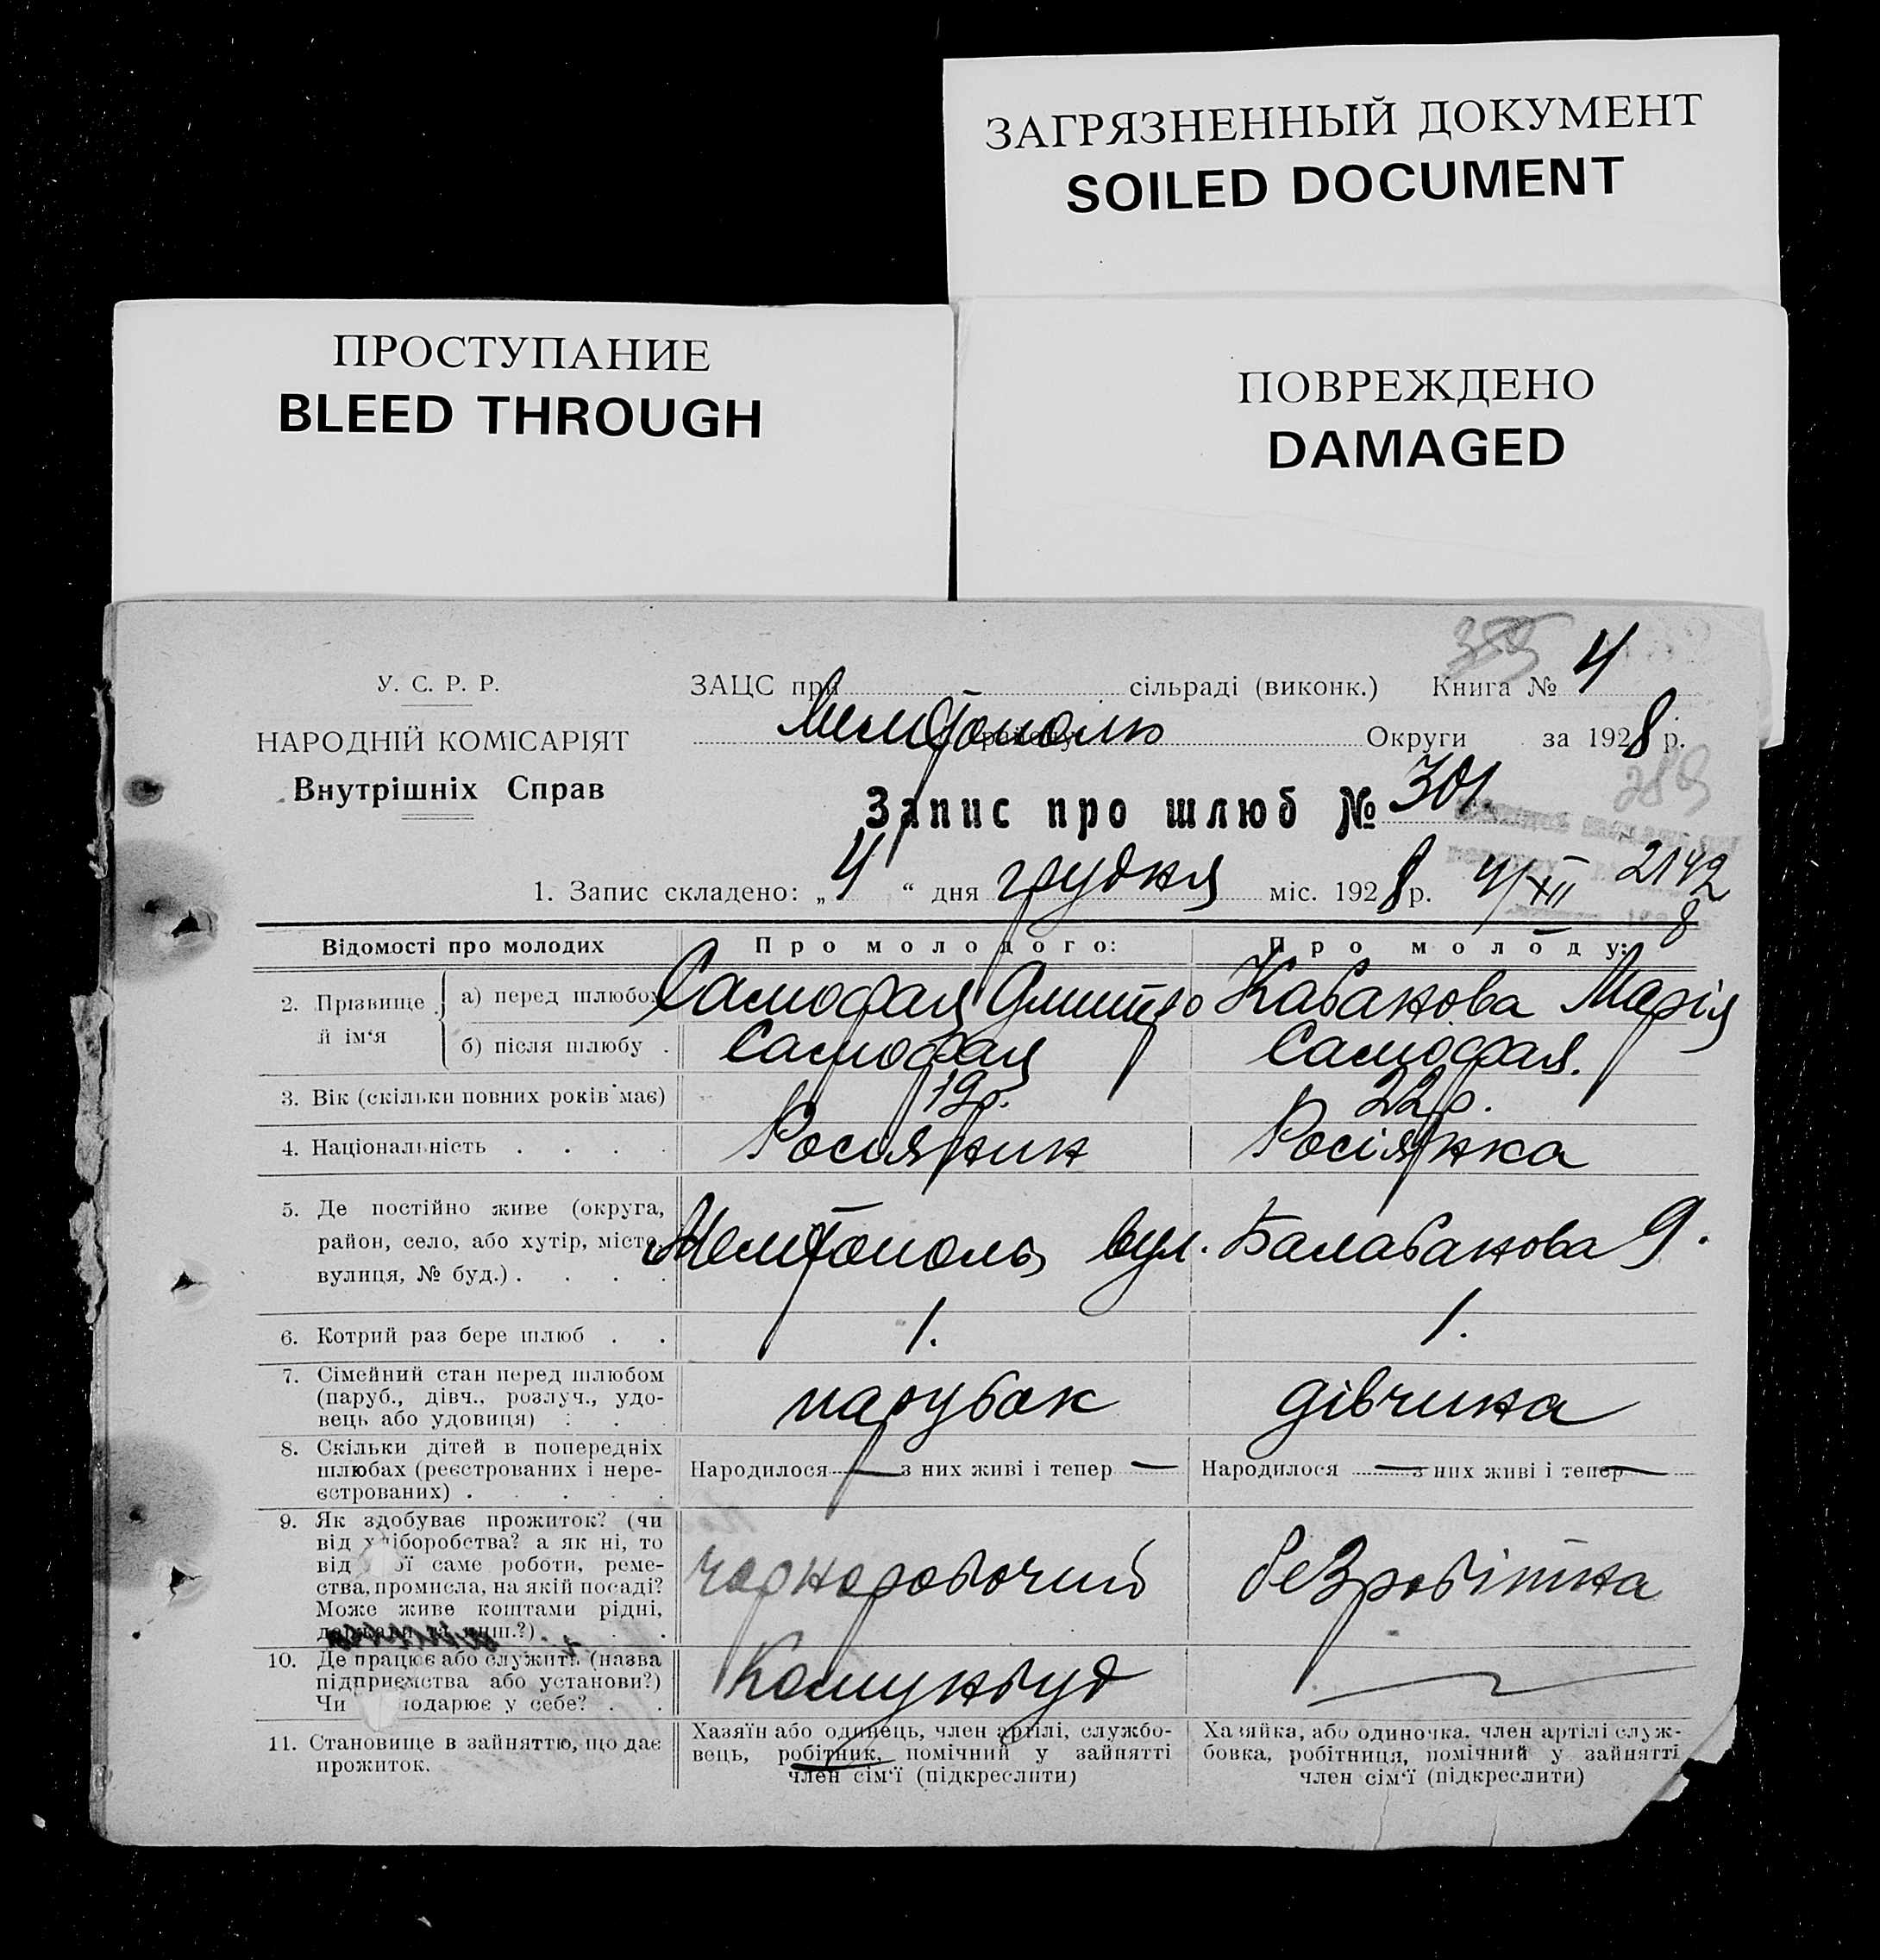 ЗАГРЯЗНЕННЫЙ ДОКУМЕНТ
SOILED DOCUMENT
ПРОСТУПАНИЕ
BLEED THROUGH
ПОВРЕЖДЕНО
DAMAGED
У. С. Р. Р.
НАРОДНІЙ КОМІСАРІЯТ
Внутрішніх Справ
359 4
ЗАЦС при сільраді (виконк.) Книга №
Мелітополю району Округи за 1928 р.
289
Запис про шлюб № 301
1. Запис складено: „4“ дня грудня міс. 1928 р. 4/XII 2142
8
Відомості про молодих Про молодого: Про молоду:
2. Прізвище й ім‘я а) перед шлюбом Самофал Дмитро Кабакова Марія
б) після шлюбу . Самофал Самофал.
3. Вік (скільки повних років має) 19 р. 22 р.
4. Національність . . . . Росіянин Росіянка
5. Де постійно живе (округа,
район, село, або хутір, місто, Мелітополь вул. Балабанова 9.
вулиця, № буд.) . . . .
6. Котрий раз бере шлюб . . 1. 1.
7. Сімейний стан перед шлюбом
(паруб., дівч., розлуч., удо- парубок дівчина
вець або удовиця) . . .
8. Скільки дітей в попередніх
шлюбах (реєстрованих і нере- Народилося — з них живі і тепер — Народилося — з них живі і тепер —
єстрованих) . . . . .
9. Як здобуває прожиток? (чи
від хліборобства? а як ні, то
від якої саме роботи, реме- чорноробочий безробітна
ства, промисла, на якій посаді?
Може живе коштами рідні,
держави та инш.?) . .
10. Де працює або служить (назва
підприємства або установи?) Комунбуд —
Чи господарює у себе? . .
11. Становище в зайняттю, що дає
прожиток.
Хазяїн або одинець, член артілі, службо-
вець, робітник, помічний у зайнятті
член сім‘ї (підкреслити)
Хазяйка, або одиночка, член артілі служ-
бовка, робітниця, помічний у зайнятті
член сім‘ї (підкреслити)